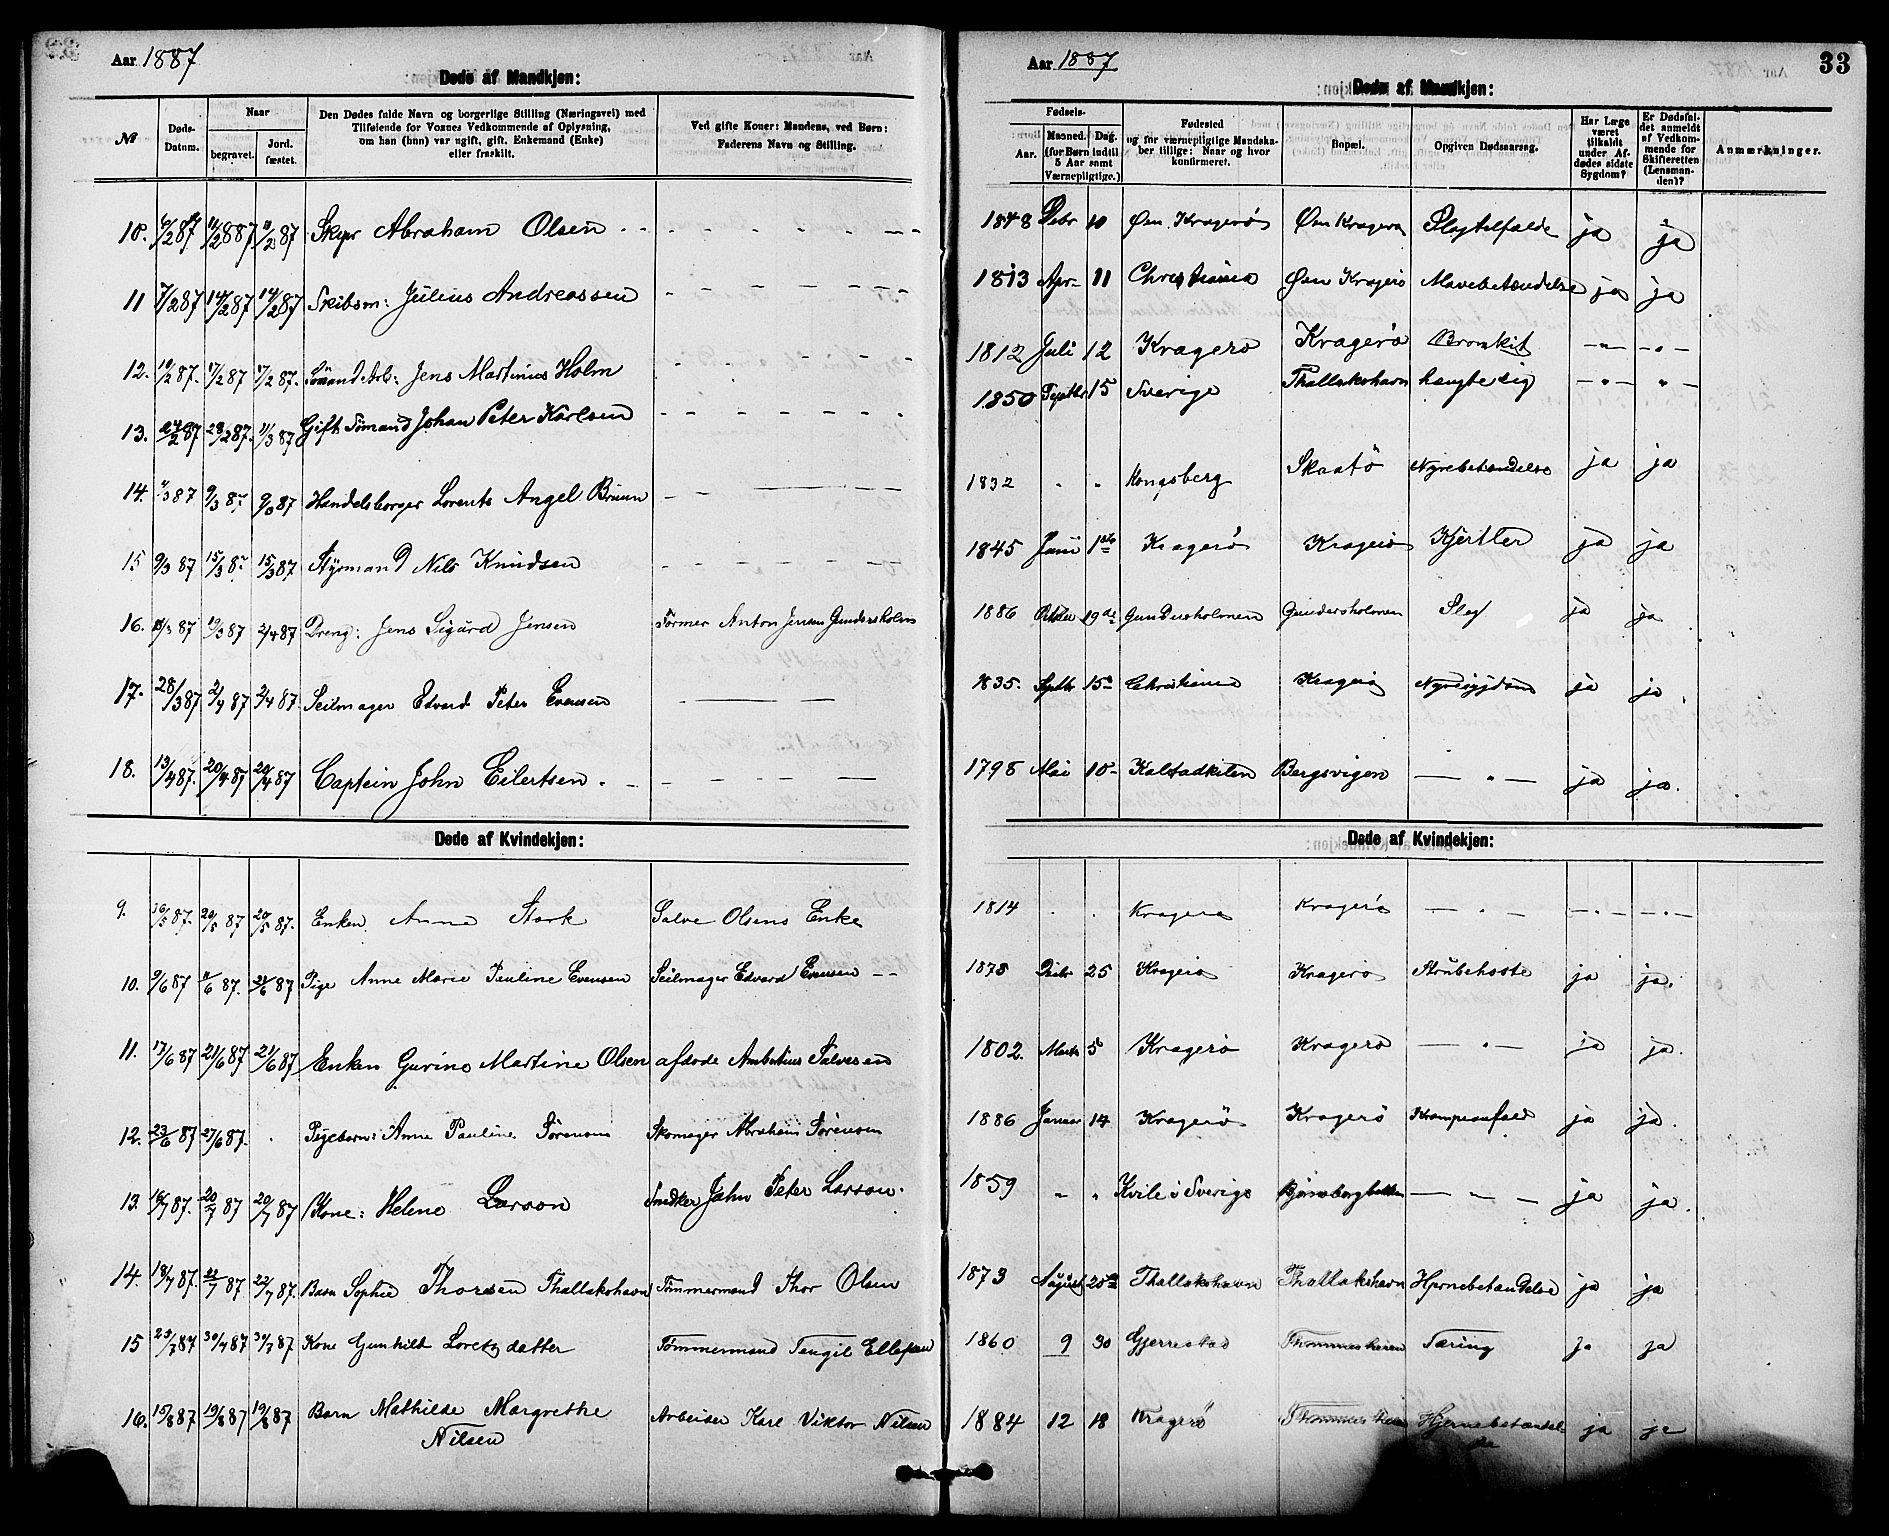 Aar 1887
Døde af Mandkjøn:
№
Døds-Datum.
Naar
begravet.
Jord. fæstet.
Den Dødes fulde Navn og borgerlige Stilling (Næringsvei) med
Tilføiende for Voxnes Vedkommende af Oplysning,
om han (hun) var ugift, gift, Enkemand (Enke)
eller fraskilt.
Ved gifte Koner: Mandens, ved Børn:
Faderens Navn og Stilling.
10. 6/287 Abraham Olsen
11 7/287 14/287 14/287 Skibsm: Julius Andreassen
12. 10/287. 17/287 17/287. Sömand Arb: Jens Martinius Holm
13. 24/287 28/287. 1/387 Gift Sömand Johan Peter Karlsen
14. 9/387 Handelsborger Lorents Angel Bruun
15 9/387 15/387 15/387 Styrmand Nils Knudsen
16. 2/487 Dreng: Jens Sigurd Jensen Former Anton Jensen Gundersholm
17. 28/387 2/487 2/487 Seilmager Edvard Peter Evensen
18. 13/487. 20/487 20/487 Captein John Eilertsen.
Døde af Kvindekjøn:
9. 16/587. 20/587 20/587. Enken Anne Stark Salve Olsens Enke
10. 9/687 87. 21/687 Pige Anne Marie Pauline Evensen Seilmager Edvard Evensen
11. 17/687 21/687 21/687 Enken Gurine Martine Olsen afdöde Ambrtius Salvesen
12. 23/687 27/687. Pigebarn: Anne Pauline Sörensen Skomager Abraham Sörensen
13. 16/787. 20/787 20/787 Kone: Helene Larson Snedker John Peter Larson.
14. 18/787. 22/787 22/787. Barn Sophie Thorsen Thallakshavn Tömmermand Thor Olsen
15 25/787 30/787 30/787 Kone Gunhild Loretzdatter Tömmermand Tengil Ellefsen
16. 15/887 19/887 19/887 Barn Mathilde Margrethe Arbeider Karl Viktor Nilsen
Nilsen
Aar 1887
33
Døde af Mandkjøn:
Fødsels-
Aar.
Maaned. Dag.
(for Børn indtil
5 Aar samt
Værnepligtige.)
Fødested
og for værnepligtige Mandska-
ber tillige: Naar og hvor
konfirmeret.
Bopæl.
Opgiven Dødsaarsag.
Har Læge
været
tilkaldt
under Af-
dødes sidste
Sygdom?
Er Dødsfal-
det anmeldt
af Vedkom-
mende for
Skifteretten
(Lensman-
den)?
Anmærkninger.
1848 10 Öen Kragerö Öen Kragerö Slagtilfælde ja ja
1813 Apr 11 Christiania Öen Kragerö Mavebetændelse ja ja
1812 Juli 12 Kragerö Kragerö Bronkit
1850 Septbr 15 Sverige Thallakshavn hængte sig
1832 Kongsberg Skaatö Nyrebetændelse ja ja
1845 Juni Kragerö Kragerö Kjertler ja ja
1886 Oktbr 19de Gundersholmen Gundersholmen Slag ja ja
1835. Septbr 15 Christiania Kragerö Nyresygdom ja ja
1798 Mai 10 Kalstadkilen Bergsvigen ja ja.
Døde af Kvindekjøn:
1814 Kragerö Kragerö
1878 Decbr 25 Kragerö Kragerö Strubehoste ja ja.
1802. Marts 5 Kragerö Kragerö ja ja.
1886 Januar 14 Kragerö Kragerö Krampeanfald ja ja.
1859 Kvile i Sverige ja ja.
1873 August Thallakshavn Thallakshavn Hjernebetændelse ja ja
1860 9 30 Gjerrestad Thommesheien Tæring ja ja
1884 12 18 Kragerö Hjernebetændel ja ja
se